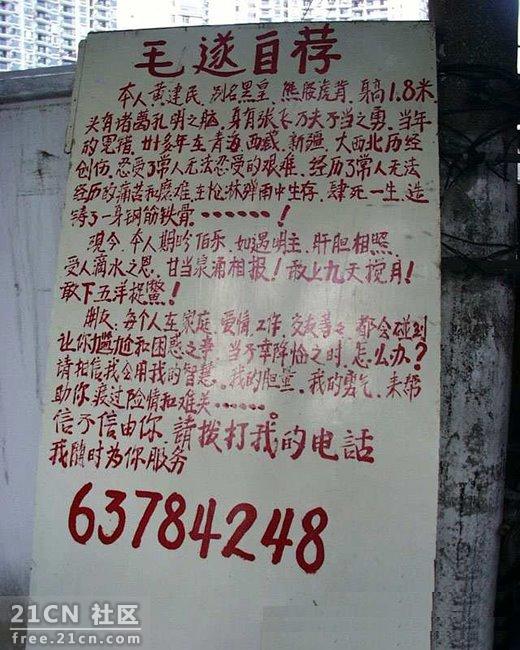 毛遂自荐
本人黄建民，别名黑皇，熊腰虎背，身高1.8米，
头有诸葛孔明之脑，身有张飞万夫于当之勇，当年
的黑猪，廿多年在青海，西藏，新疆，大西北历经
创伤，忍受了常人无法忍受的艰难，经历了常人无法
经历的痛苦和磨难，在枪林弹雨中生存，肆死一生，造
铸了一身钢筋铁骨……！
现今，本人期盼伯乐，如遇明主，肝胆相照，
受人滴水之恩，甘当泉涌相报！敢上九天揽月！
敢下五洋捉鳖！
朋友：每个人在家庭，爱情，工作，交友等々，都会碰到
让你尴尬和困惑之事，当不幸降临之时，怎么办？
请相信我会用我的智慧，我的胆量，我的勇气，来帮
助你渡过险情和难关……。
信不信由你，请拨打我的电话
我随时为你服务
63784248
21CN 社区
free.21cn.com